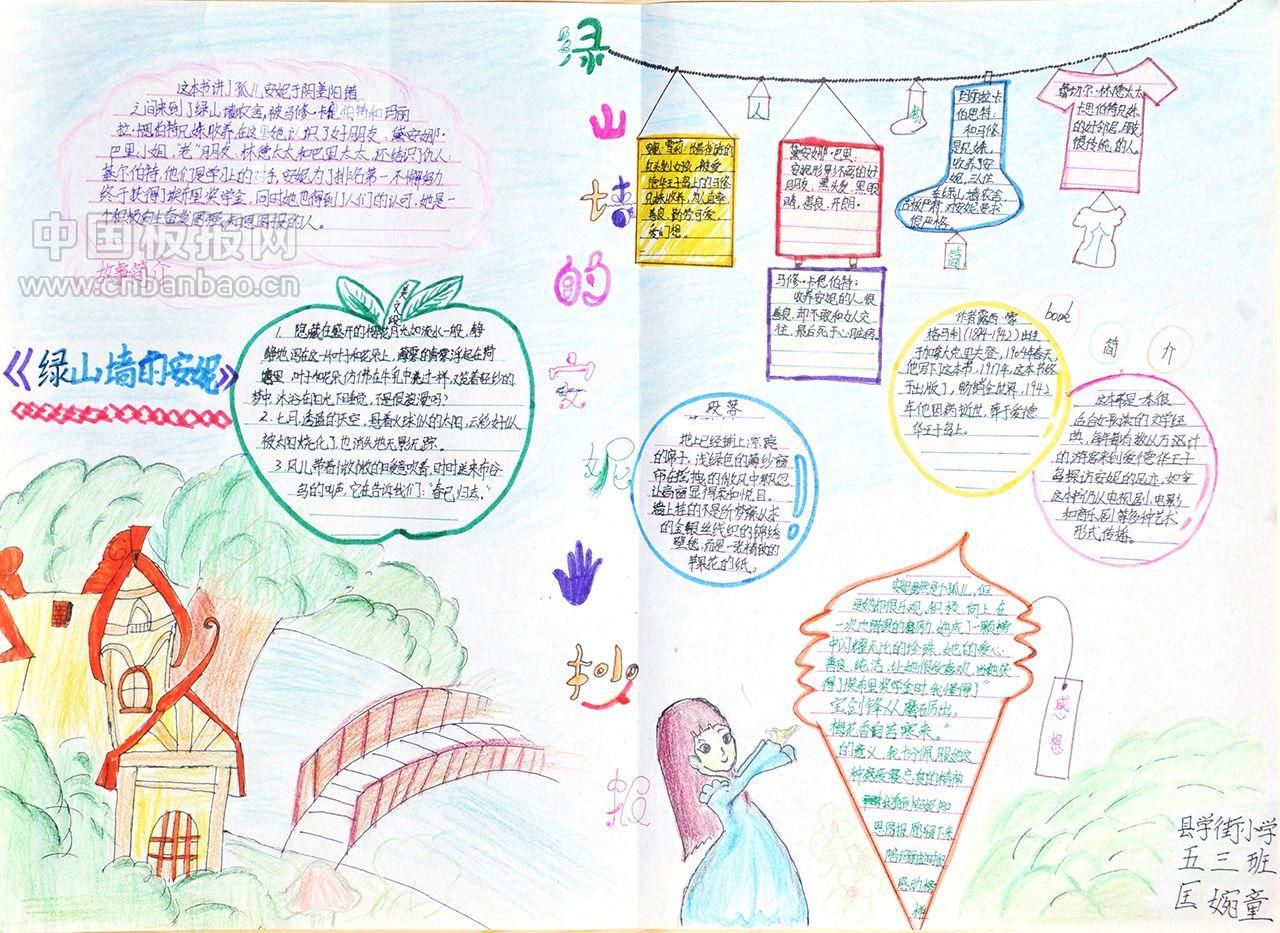 这本书讲了孤儿安妮于阴差阳错
之间来到了绿山墙农舍,被马修·卡思伯特和玛丽
拉·思伯特兄妹收养.在这里她认识了好朋友、黛安娜·
巴里小姐,"老"朋友,林德太太和巴里太太,还结识了仇人:
基尔伯特,他们是学习上的对手,安妮为了排名第一不懈努力.
终于获得了埃布里奖学金,同时她也得到了人们的认可,她是一
个积极向上自爱自强,知恩图报的人。
故事简介
中国板报网
www.cnbanbao.cn
《绿山墙的安妮》
优文段
1. 隐藏在盛开的樱花月光如流水一般,静
静地泻在这一片叶子和花朵上,薄薄的青雾浮起在荷
塘里.叶子和花朵仿佛在牛乳中洗过一样,又笼着轻纱的
梦中
2.七月,透蓝的天空,悬着火球似的太阳,云彩好似
被太阳烧化了,也消失地无影无踪。
3.风儿带着微微的暖意吹着,时时送来布谷
鸟的叫声,它在告诉我们:"春已归去。"
绿
山
墙
的
安
妮
手
抄
报
人
物
简
介
黛安娜·巴里:
安妮形影不离的好
朋友,黑头发,黑眼
睛,善良,开朗。
马修·卡思伯特:
收养安妮的人,很
善良,却不敢和女人交
往,最后死于心脏病。
玛丽拉·卡
伯思特:
和马修
是兄妹,
收养了安
妮,
在绿山墙农舍
古板严肃,对安妮要求
很严格。
蕾切尔·林德太太
卡思伯特兄妹
的好邻居,
传统的人。
book
简
介
作者露西·蒙
格玛利(1874-1942)出生
于加拿大克里夫登,1904年春天,
他写下了这本书,1917年,这本书终
于出版了,畅销全世界,1942
年他因病逝世,葬于爱德
华王子岛上。
这本书是一本很
适合女孩读的文学经
典,每年都有数以万计
的游客来到爱德华王子
岛探访安妮的足迹,如今
这本书仍以电视剧,电影
和音乐剧等多种艺术
形式传播。
段落
地上已经铺上深
的席子,浅绿色的薄纱窗
帘在
让窗前显得柔和悦目。
墙上挂的不是所
的金银丝线织的锦绣
壁毯,而是一张精致的
苹果花的纸。
安妮虽然是个孤儿,但
是她却很乐观、积极、向上,在
一次次错误的磨励,她成了一颗榜
中闪耀无比的珍珠,她的爱心.
善良,纯洁,让她很受喜欢,当她获
得了埃布里奖学金时,我懂得了"
宝剑锋从磨砺出,
梅花香自苦寒来。
的意义,我十分佩服她这
种
安妮知
恩图报,愿留下来
感想
县学街小学
五三班
匡婉童